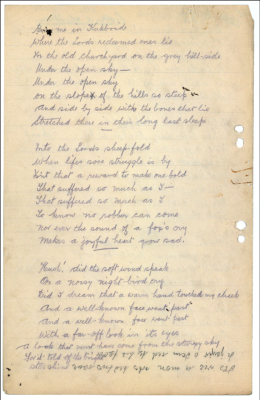 me in Kirkbride
Where the Lord's redeemed anes lie
In the old churchyard on the grey hill-side
Under the open sky —
Under the open sky
On the slopes of the hills as steep
And side by side with the bones that lie
Stretched there in their long last sleep

Into the Lord's sheep-fold
When life's sore struggle is by
Isn't that a reward to make one bold
That suffered so much as I —
That suffered so much as I
To know no robber can come
nor ever the sound of a fox's cry
Makes a joyful heart grow sad.

Hush! did the soft wind speak
Or a noisy night-bird cry
Did I dream that a warm hand touched my cheek
And a well-known face went past
And a well-known face went past
With a far-off look in its eyes
a look that must have come from the starry sky
told of the